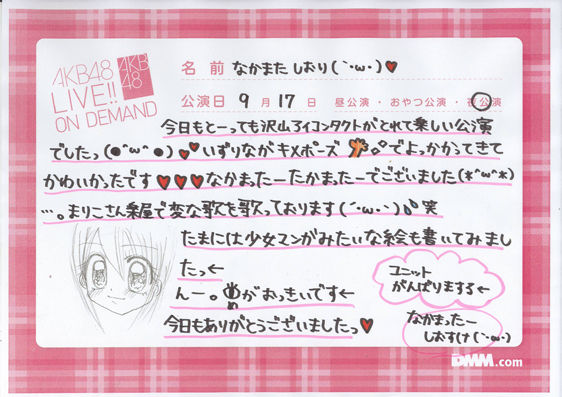 AKB48
LIVE!!
ON DEMAND
AKB
48
名前 なかまたしおり(｀･ω･)♥
公演日 9月17日 昼公演・おやつ公演・夜公演
今日もとーっても沢山アイコンタクトがとれて楽しい公演
でしたっ(●^ω^●)♥♥いずりながキメポーズ でよっかかってきて
かわいかったです♥♥♥なかまったーたかまったーでございました(*^ω^*)
…。まりこさん楽屋で変な歌を歌っております(´･ω･`)笑
たまには少女マンガみたいな絵も書いてみまし
たっ←
んー。目がおっきいです←
今日もありがとうございましたっ♥
ユニット
がんばりまする←
なかまったー
しおすけ(｀･ω･)
DMM.com